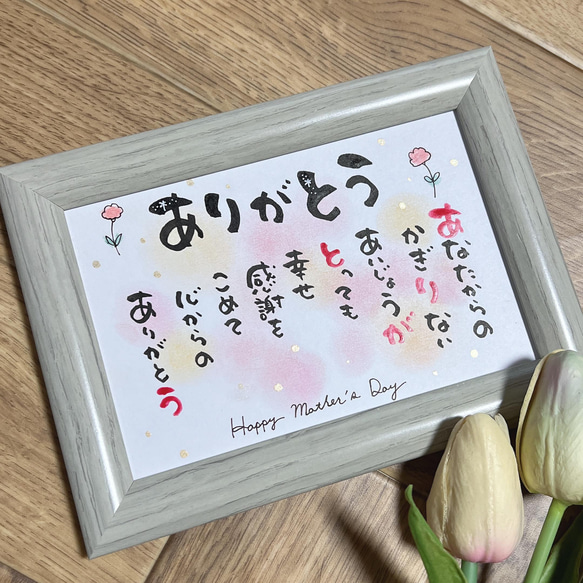 ありがとう
あなたからの
かぎりない
あいじょうが
とっても
幸せ
感謝を
こめて
心からの
ありがとう
Happy Mother's Day